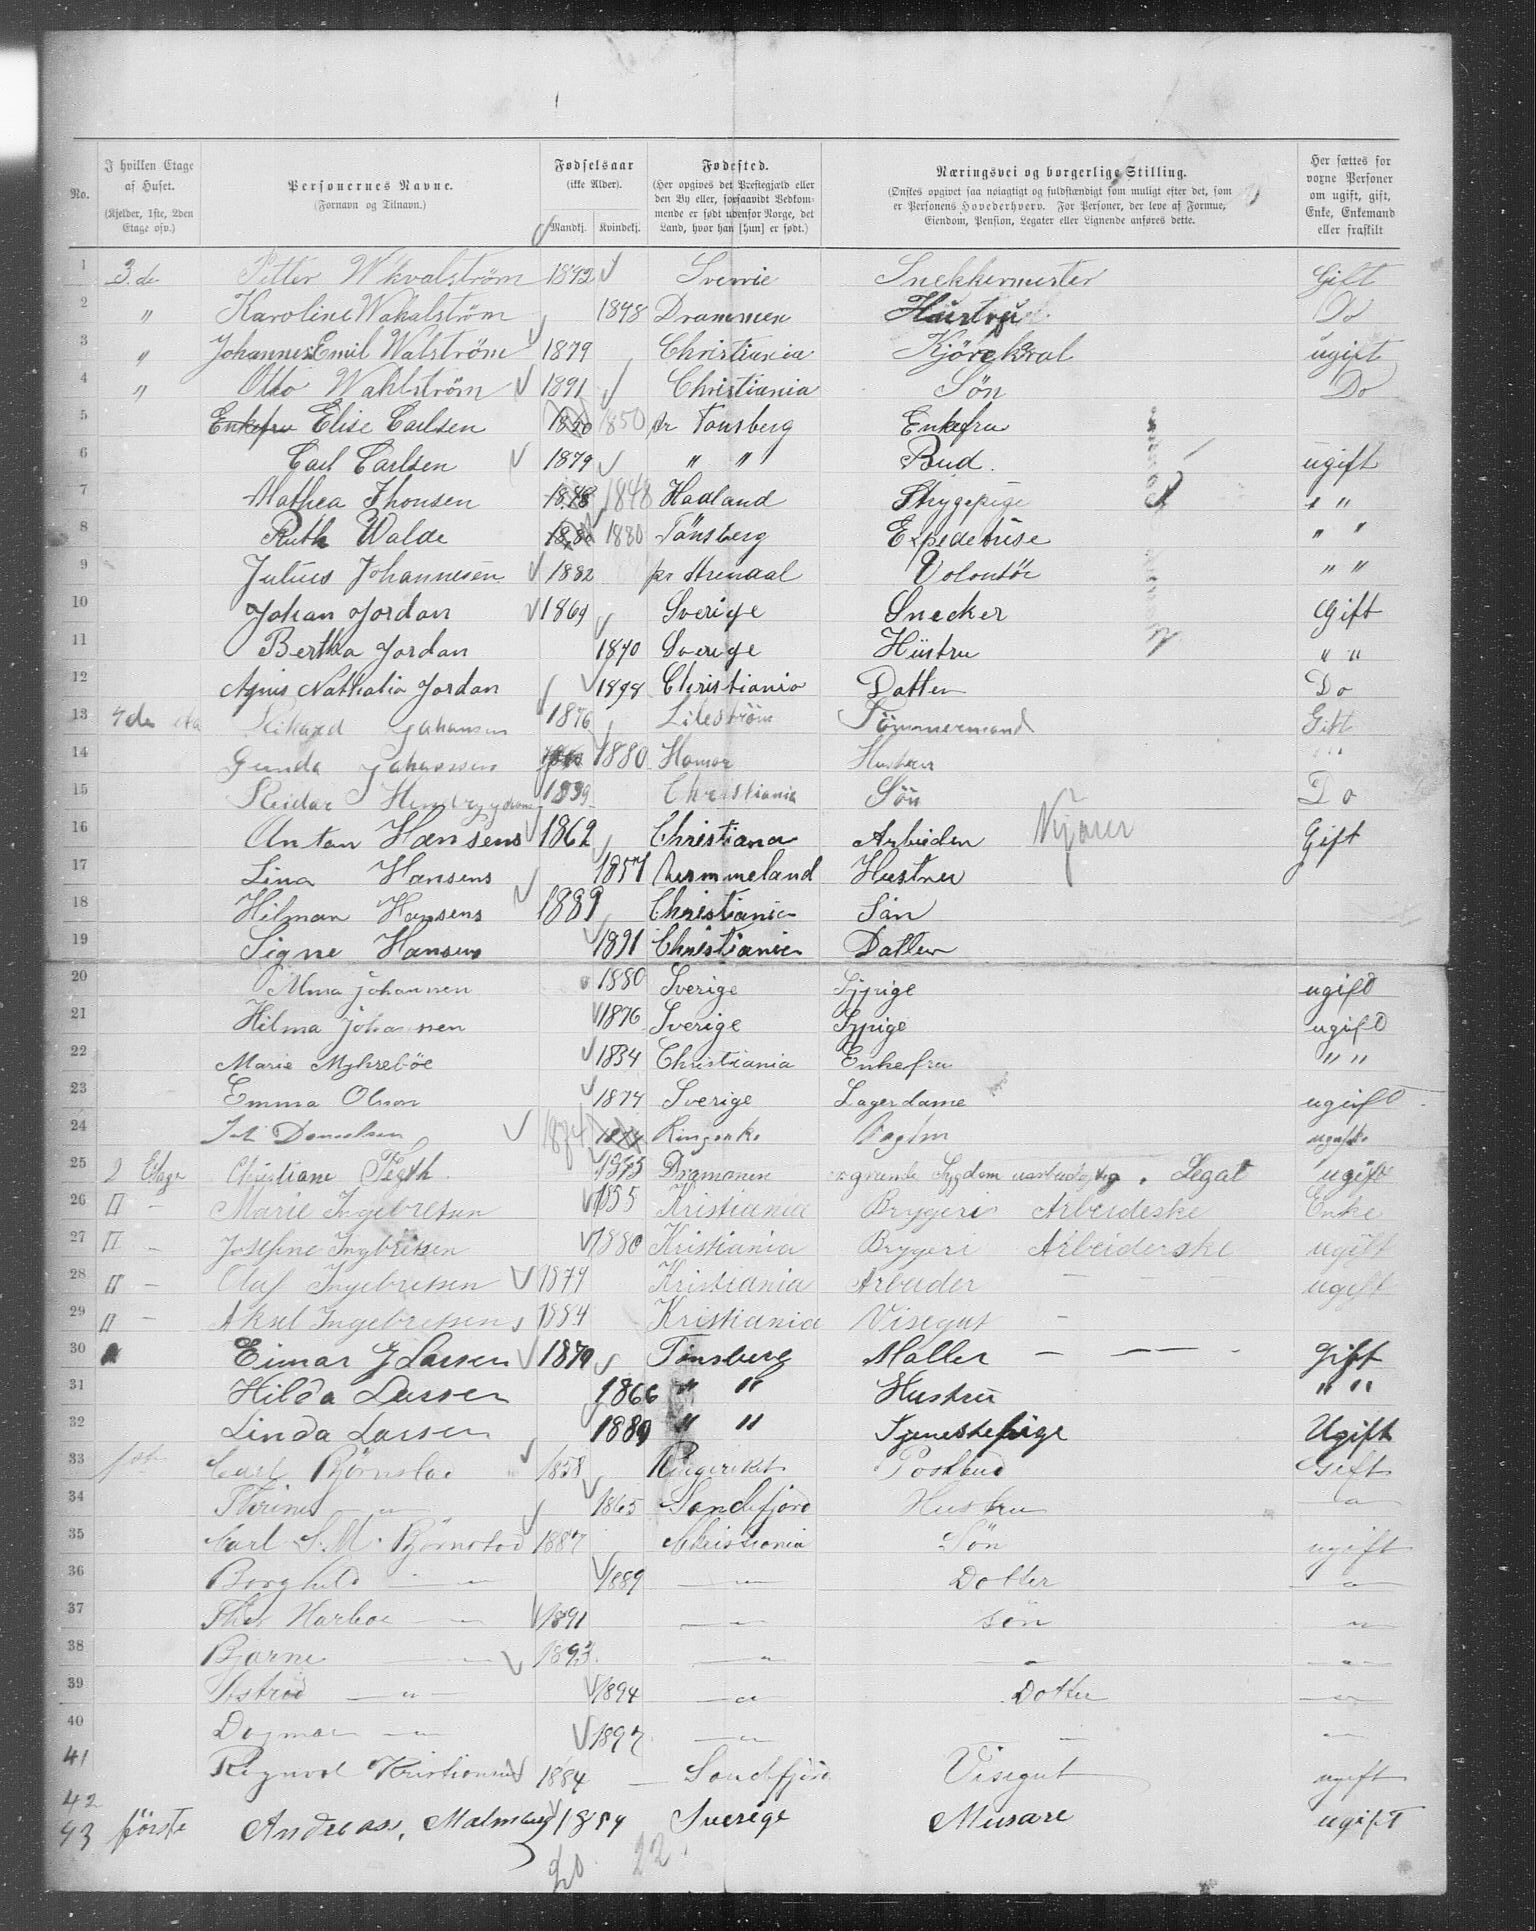 No.
I hvilken Etage af Huset. (Kjelder, 1ste, 2den Etage osv.)
Personernes Navne. (Fornavn og Tilnavn.)
Fødselsaar (ikke Alder). Mandkj. Kvindekj.
Fødested. (Her opgives det Præstegjæld eller den By eller, forsaavidt Vedkommende er født udenfor Norge, det Land, hvor han [hun] er født.)
Næringsvei og borgerlige Stilling. (Ønskes opgivet saa nøiagtigt og fuldstændigt som muligt efter det, som er Personens Hovederhverv. For Personer, der leve af Formue, Eiendom, Pension, Legater eller Lignende anføres dette.
Her sættes for voxne Personer om ugift, gift, Enke, Enkemand eller fraskilt
1 3. de Petter 1842 Sverrie Snekkermester Gift
2 " Karoline 1848 Drammen Hustru Do
3 " Johannes Emil Walström 1879 Christiania ugift
4 " Otto Wahlström 1891 Christiania Søn Do
5 Enkefru Elise Carlsen 1850 1850 pr Tønsberg Enkefru
6 Carl Carlsen 1879 " " Bud. ugift
7 Mathea Thonsen 1848 1848 Hadland " "
8 Ruth Walde 1880 1880 Tønsberg Expedetrise " "
9 Julius Johannesen 1882 pr Arendal Volontør " "
10 Johan Jordan 1869 Sverige Snecker Gift
11 Bertha Jordan 1870 Sverige Hüstru " "
12 Agnis Nathalia Jordan 1898 Christiania Datter Do
13 4de Rikard Johansen 1876 Lileström Tömmermand Gift
14 Gunda Johansen 1880 Hamar Hustru " "
15 Reidar 1899 Christiania Søn Do
16 Anton Hansens 1862 Christiana Arbeiden Gift
17 Lina Hansens 1857 Hustru
18 Hilman Hansens 1889 Christiania Sön
19 Signe Hansens 1891 Christiania Datter
20 Johannsen 1880 Sverige Sypige ugift
21 Hilma Johannsen 1876 Sverige Sypige ugift
22 Marie Myhreböe 1834 Christiania Enkefru " "
23 Emma Olsson 1874 Sverige Lagerdame ugift
24 Danielsen 1874 Ringerike ugift
25 2 Etage Christiane 1835 Drammen Legat ugift
26 II - Marie Ingebretsen 1855 Kristiania Bryggeri Arbeideske Enke
27 II - Josefine Ingebretsen 1880 Kristiania Bryggeri Arbeiderske ugift
28 II - Olaf Ingebretsen 1879 Kristiania Arbeider ugift
29 II - Aksel Ingebretsen 1884 Kristiania Visegut -
30 Einar J Larsen 1870 Tønsberg Maller gift
31 Hilda Larsen 1866 " " Hustru " "
32 Linda Larsen 1880 " " Tjenestepige Ugift
33 1ste Carl Bjørnstad 1858 Ringeriket Postbud Gift
34 Thrine — " — 1865 Sandefjord Hustru — " —
35 Carl S. M. Bjørnstad 1887 Christiania Søn ugift
36 Borghild — " — 1889 — " — Dotter — " —
37 Thor Harboe — " — 1891 — " — søn — " —
38 Bjarne — " — 1893 — " — — " — — " —
39 Astrid — " — 1894 — " — Dotter — " —
40 Dagmar — " — 1897 — " — — " —
41 Ragnvol Kristiansen 1884 Sandefjord Visegut ugift
42
43 første Andreas, Malmberg Sverige Musare ugift
20 22